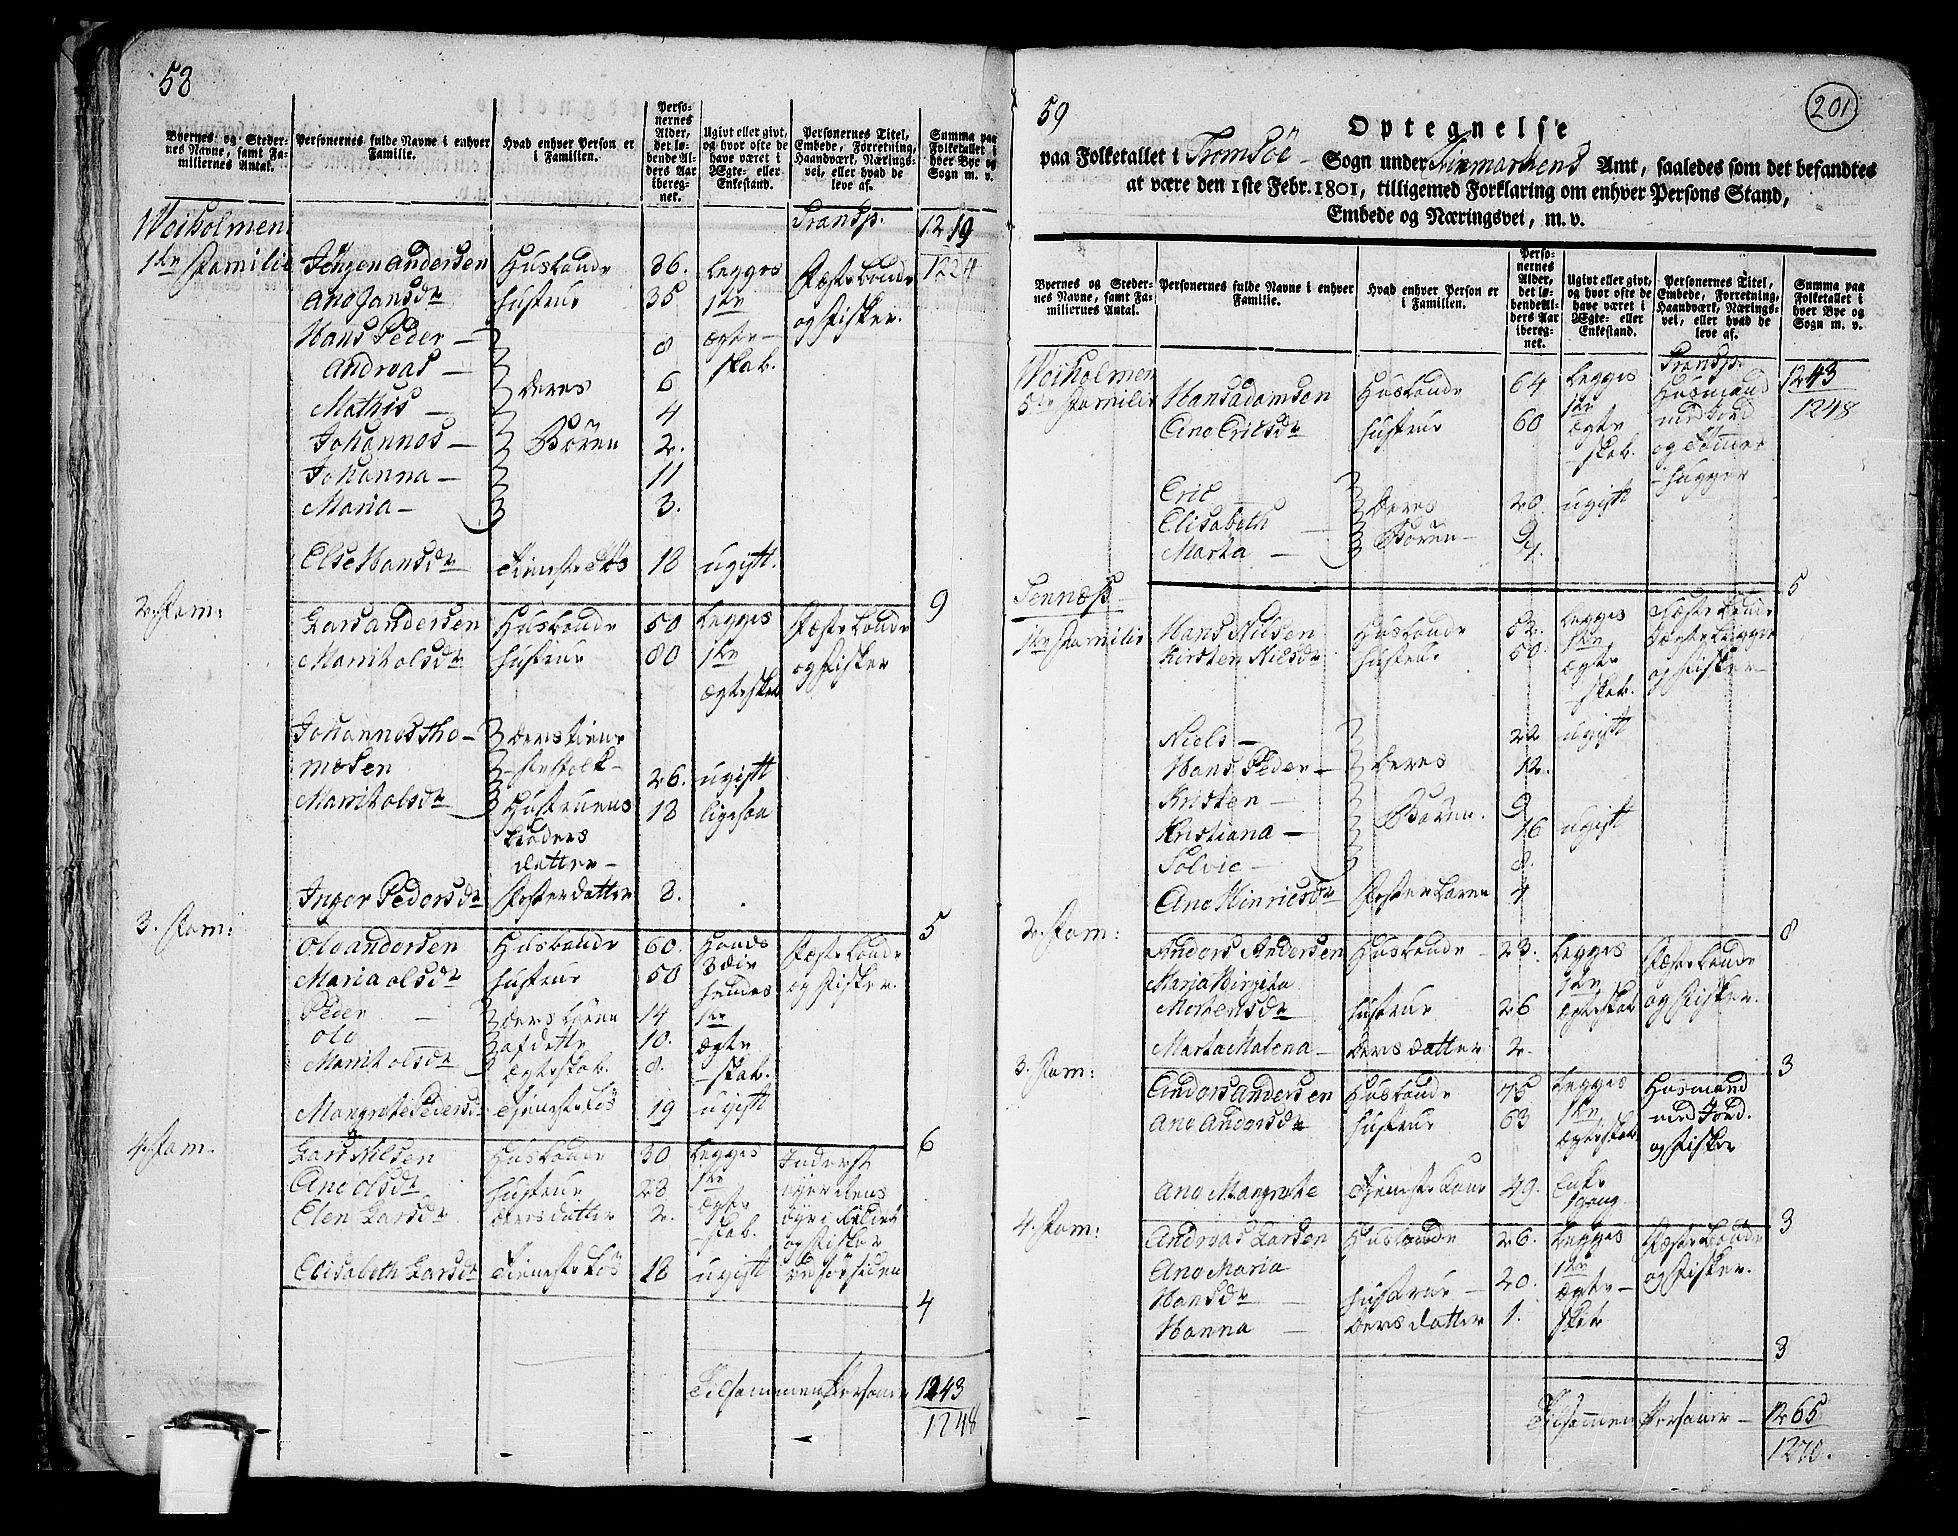 58
Byernes og Steder-
nes Navne, samt Fa-
miliernes Antal.
Personernes fulde Navne i enhver
Familie.
Hvad enhver Person er
i Familien.
Perso-
nernes
Alder,
det lø-
bende Al-
ders Aar
ibereg-
net.
Ugivt eller givt,
og hvor ofte de
have været i
Ægte- eller
Enkestand.
Personernes Titel,
Embede, Forretning,
Haandværk, Nærings-
vei, eller hvad de
leve af.
Summa paa
Folketallet i
hver Bye og
Sogn m. v.
Transp. 1219
1224
Weiholmen
1ste Familie Jörgen Andersen Husbonde 36. begges Fæste bonde
Ane Jansdr hustrue 35 1ste og Fisker.
Hans Peder — 8 ægte-
Andreas — 6 skab.
Mathis — deres 4
Johannes — Börn 2.
Johanna — 11
Maria — 3.
Else Hansdr tieneste Tös 18 ugift.
9
2. Fam: Lars Andersen Husbonde 50 begges Fæste bonde
Marrit olsdr hustrue 80 1ste og Fisker
ægteskab
Johannes Tho- deres tiene-
mæsen stefolk — 26. ugift
Marrit olsdr Hustruens 18 ligesaa
broders
datter —
Inger Pedersdr Foster datter 8.
5
3. Fam: Ole Andersen Husbonde 60. Hands Fæste bonde
Maria olsdr hustrue 50 3die og Fisker.
hendes
Peder — deres börn 14 1ste
Ole af dette 10. ægte
Marrit olsdr ægteskab. 8. -skab.
Mangrete Pedersdr tieneste tös 19 ugift
6
4. Fam. Lars Nilsen Husbonde 30 begges Inderst
Ane olsdr hustrue 28 1ste
Elen Larsdr deres datter 2. ægte
-skab. og Fisker
Elisabeth Larsdr tieneste tös 18 ugift ved Söesiden
4
Tilsammen Personer 1243
1248
59
201
Optegnelse
paa Folketallet i Tromsöe Sogn under Finmarkens Amt, saaledes som det befandtes
at være den 1ste Febr. 1801, tilligemed Forklaring om enhver Persons Stand,
Embede og Næringsvei, m. v.
Byernes og Steder-
nes Navne, samt Fa-
miliernes Antal.
Personernes fulde Navne i enhver
Familie.
Hvad enhver Person er
i Familien.
Perso-
nernes
Alder,
det lø-
bende Al-
ders Aar
ibereg-
net.
Ugivt eller givt,
og hvor ofte de
have været i
Ægte- eller
Enkestand.
Personernes Titel,
Embede, Forretning,
Haandværk, Nærings-
vei, eller hvad de
leve af.
Summa paa
Folketallet i
hver Bye og
Sogn m. v.
Transp. 1243
1248
Weiholmen
5te Familie Hans Adamsen Husbonde 64 begges Husmand
1ste med Jord
Ane Ericsdr hustrue 60 ægte og Tömmer
-skab. -hugger
Eric deres 20. ugift
Elisabeth — Börn — 9
Marta — 4.
5
Tennæss
1ste Familie Hans Nilsen Husbonde 52. begges Fæste bonde
Kirsten Nilsdr hustrue 50. 1ste
ægte og Fisker —
skab.
Niels — 22 ugift
Hans Peder — deres 12.
Kristen — Börn. 9
Kristiana — 16 ugift
Solvie — 8.
Ane Hinricsdr Foster barn 4
8
2. Fam: Anders Andersen Husbonde 23. begges Fæste bonde
Marja Birgita 1ste
Mortensdr hustrue 26 ægteskab og Fisker.
Marta Malena — deres datter 2.
3
3. Fam: Anders Andersen Husbonde 75 begges Husmand
Ane Andersdr hustrue 63 1ste med Jord.
ægteskab og Fisker
Ane Mangrete tieneste kone 49. Enke
1gang
3
4. Fam: Andreas Larsen Husbonde 26. begges Fæste bonde
Ane Maria 1ste og Fisker.
Hansdr — hustrue — 20. ægte —
Hanna — deres datter 1. skab
3
Tilsammen Personer — 1265
1270.